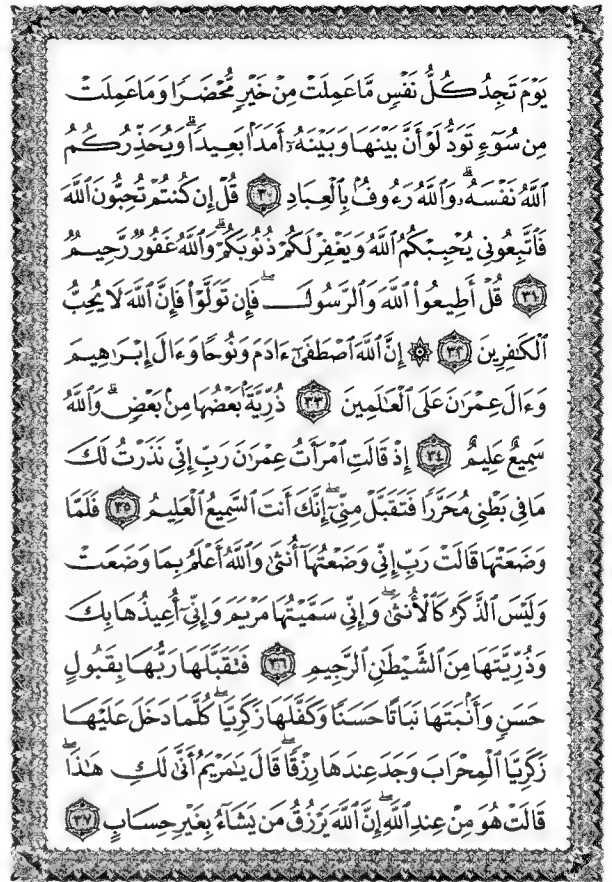 يَوْمَ تَجِدُ كُلُّ نَفْسٍ مَّا عَمِلَتْ مِنْ خَيْرٍ مُّحْضَرًا وَمَا عَمِلَتْ
مِن سُوٓءٍ تَوَدُّ لَوْ أَنَّ بَيْنَهَا وَبَيْنَهُۥٓ أَمَدَۢا بَعِيدًا ۗ وَيُحَذِّرُكُمُ
ٱللَّهُ نَفْسَهُۥ ۗ وَٱللَّهُ رَءُوفٌۢ بِٱلْعِبَادِ ٣٠ قُلْ إِن كُنتُمْ تُحِبُّونَ ٱللَّهَ
فَٱتَّبِعُونِى يُحْبِبْكُمُ ٱللَّهُ وَيَغْفِرْ لَكُمْ ذُنُوبَكُمْ ۗ وَٱللَّهُ غَفُورٌ رَّحِيمٌ
٣١ قُلْ أَطِيعُوا۟ ٱللَّهَ وَٱلرَّسُولَ ۖ فَإِن تَوَلَّوْا۟ فَإِنَّ ٱللَّهَ لَا يُحِبُّ
ٱلْكَٰفِرِينَ ٣٢ ۞ إِنَّ ٱللَّهَ ٱصْطَفَىٰٓ ءَادَمَ وَنُوحًا وَءَالَ إِبْرَٰهِيمَ
وَءَالَ عِمْرَٰنَ عَلَى ٱلْعَٰلَمِينَ ٣٣ ذُرِّيَّةًۢ بَعْضُهَا مِنۢ بَعْضٍ ۗ وَٱللَّهُ
سَمِيعٌ عَلِيمٌ ٣٤ إِذْ قَالَتِ ٱمْرَأَتُ عِمْرَٰنَ رَبِّ إِنِّى نَذَرْتُ لَكَ
مَا فِى بَطْنِى مُحَرَّرًا فَتَقَبَّلْ مِنِّىٓ ۖ إِنَّكَ أَنتَ ٱلسَّمِيعُ ٱلْعَلِيمُ ٣٥ فَلَمَّا
وَضَعَتْهَا قَالَتْ رَبِّ إِنِّى وَضَعْتُهَآ أُنثَىٰ وَٱللَّهُ أَعْلَمُ بِمَا وَضَعَتْ
وَلَيْسَ ٱلذَّكَرُ كَٱلْأُنثَىٰ ۖ وَإِنِّى سَمَّيْتُهَا مَرْيَمَ وَإِنِّىٓ أُعِيذُهَا بِكَ
وَذُرِّيَّتَهَا مِنَ ٱلشَّيْطَٰنِ ٱلرَّجِيمِ ٣٦ فَتَقَبَّلَهَا رَبُّهَا بِقَبُولٍ
حَسَنٍ وَأَنۢبَتَهَا نَبَاتًا حَسَنًا وَكَفَّلَهَا زَكَرِيَّا ۖ كُلَّمَا دَخَلَ عَلَيْهَا
زَكَرِيَّا ٱلْمِحْرَابَ وَجَدَ عِندَهَا رِزْقًا ۖ قَالَ يَٰمَرْيَمُ أَنَّىٰ لَكِ هَٰذَا ۖ
قَالَتْ هُوَ مِنْ عِندِ ٱللَّهِ ۖ إِنَّ ٱللَّهَ يَرْزُقُ مَن يَشَآءُ بِغَيْرِ حِسَابٍ ٣٧